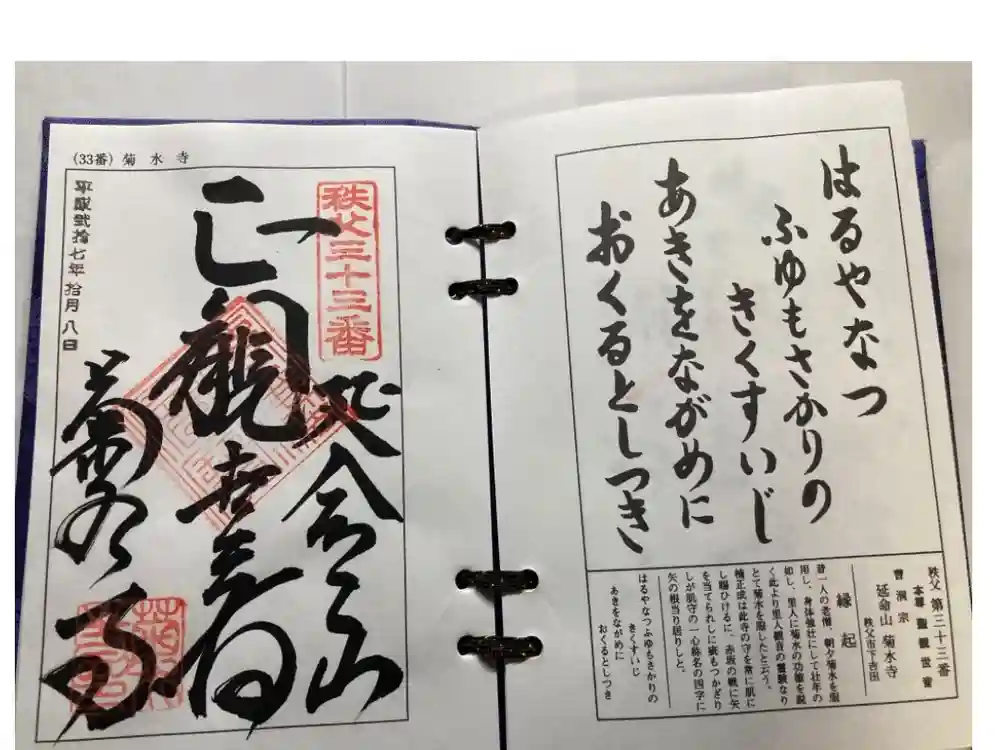 はるやなつ
ふゆもさかりの
きくすいじ
あきをながめに
おくるとしつき
秩父 第三十三番
本尊 聖観世音
曹洞宗
延命山 菊水寺
秩父市下吉田
縁起
昔一人の老僧、朝夕菊水を服
用し、身体強壮にして壮年の
如し、里人に菊水の功徳を説
く此より里人観音の霊験なり
とて菊水を服したと云う。
楠正成は此寺の守を常に肌に
し賜ひけるに、赤坂の戦に矢
を当てられしに疵もつかざり
しが肌守の一心称名の四字に
矢の根当り居りしと。
はるやなつふゆもさかりの
きくすいじ
あきをながめに
おくるとしつき
(33番) 菊水寺
秩父三十三番
延命山
正観世音
菊水寺
平成弐拾七年 拾月 八日